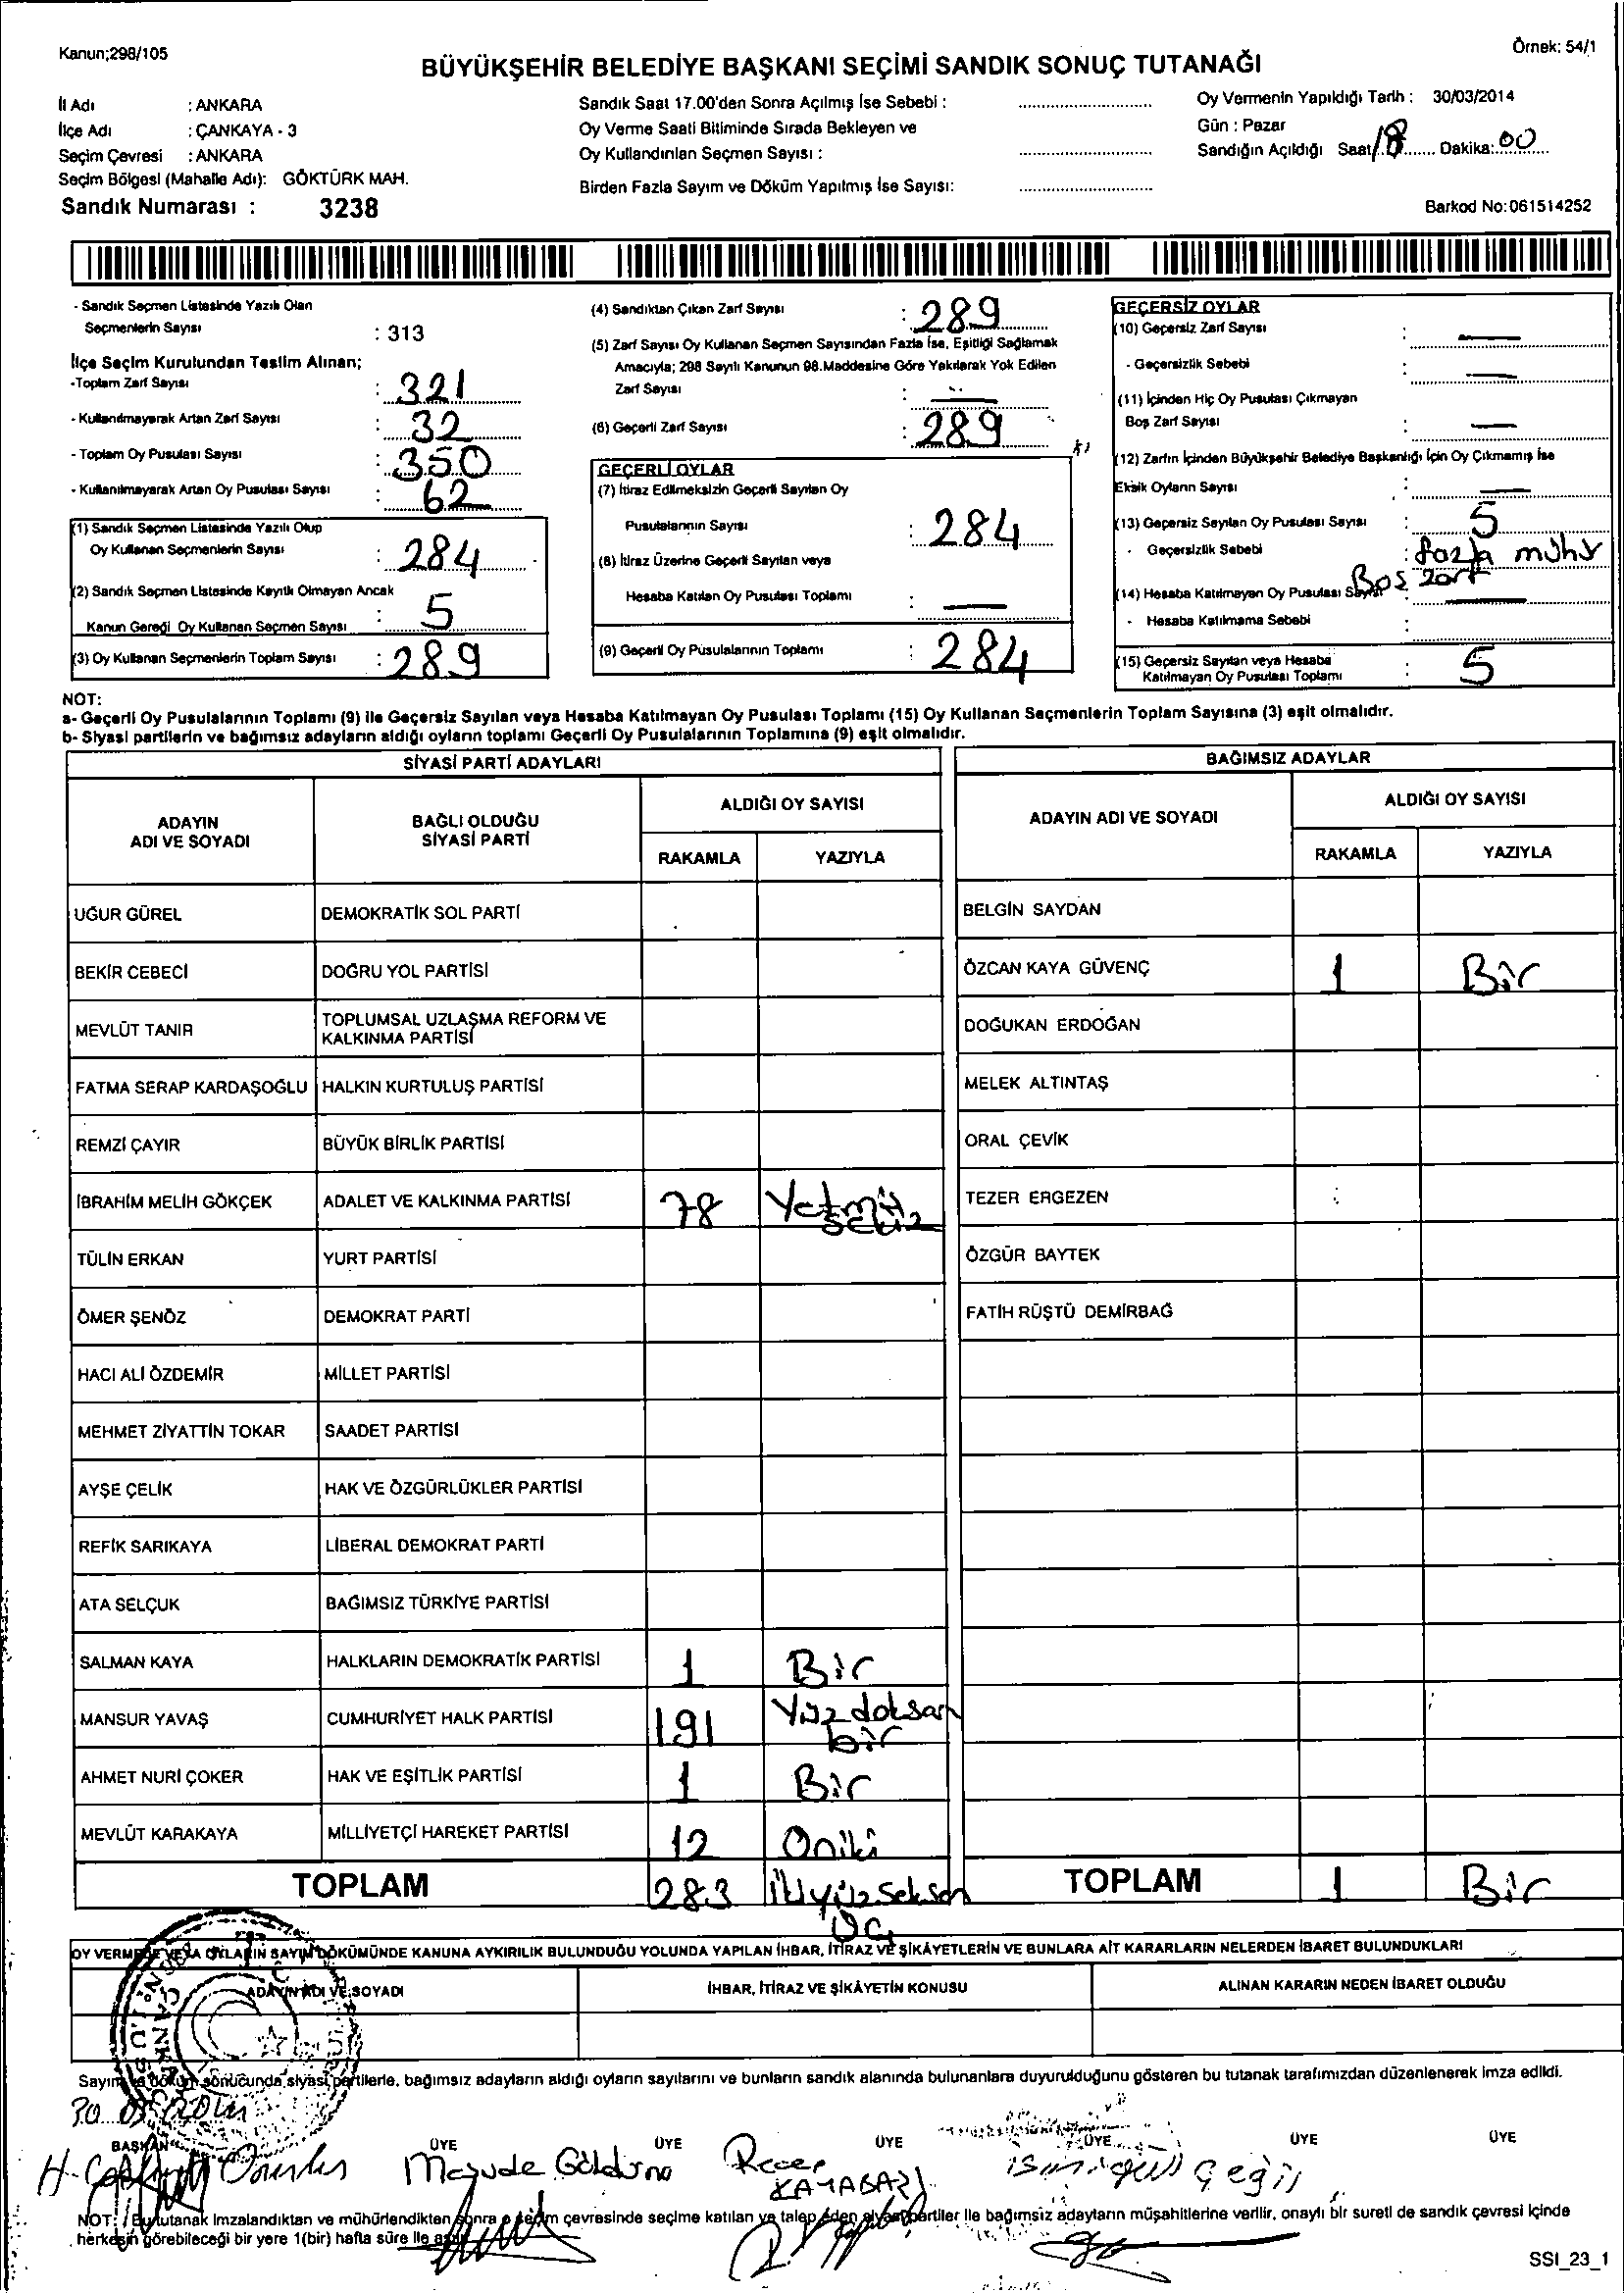 Kanun;298/105
Örnek: 54/1
BÜYÜKŞEHİR BELEDİYE BAŞKANI SEÇİMİ SANDIK SONUÇ TUTANAĞI
İl Adı : ANKARA
İlçe Adı : ÇANKAYA - 3
Seçim Çevresi : ANKARA
Seçim Bölgesi (Mahalle Adı): GÖKTÜRK MAH.
Sandık Numarası : 3238
Sandık Saat 17.00'den Sonra Açılmış İse Sebebi : ..............
Oy Verme Saati Bitiminde Sırada Bekleyen ve
Oy Kullandırılan Seçmen Sayısı : ..............
Birden Fazla Sayım ve Döküm Yapılmış İse Sayısı: ..............
Oy Vermenin Yapıldığı Tarih : 30/03/2014
Gün : Pazar
Sandığın Açıldığı Saat 18 Dakika: 00
Barkod No:061514252
- Sandık Seçmen Listesinde Yazılı Olan
Seçmenlerin Sayısı : 313
İlçe Seçim Kurulundan Teslim Alınan;
-Toplam Zarf Sayısı : 321
- Kullanılmayarak Artan Zarf Sayısı : 32
- Toplam Oy Pusulası Sayısı : 350
- Kullanılmayarak Artan Oy Pusulası Sayısı : 62
(1) Sandık Seçmen Listesinde Yazılı Olup
Oy Kullanan Seçmenlerin Sayısı : 284
(2) Sandık Seçmen Listesinde Kayıtlı Olmayan Ancak
Kanun Gereği Oy Kullanan Seçmen Sayısı : 5
(3) Oy Kullanan Seçmenlerin Toplam Sayısı : 289
(4) Sandıktan Çıkan Zarf Sayısı : 289
(5) Zarf Sayısı Oy Kullanan Seçmen Sayısından Fazla İse, Eşitliği Sağlamak
Amacıyla; 298 Sayılı Kanunun 98.Maddesine Göre Yakılarak Yok Edilen
Zarf Sayısı : —
(6) Geçerli Zarf Sayısı : 289
GEÇERLİ OYLAR
(7) İtiraz Edilmeksizin Geçerli Sayılan Oy
Pusulalarının Sayısı : 284
(8) İtiraz Üzerine Geçerli Sayılan veya
Hesaba Katılan Oy Pusulası Toplamı : —
(9) Geçerli Oy Pusulalarının Toplamı : 284
GEÇERSİZ OYLAR
(10) Geçersiz Zarf Sayısı : —
- Geçersizlik Sebebi : —
(11) İçinden Hiç Oy Pusulası Çıkmayan
Boş Zarf Sayısı : —
(12) Zarfın İçinden Büyükşehir Belediye Başkanlığı İçin Oy Çıkmamış İse
Eksik Oyların Sayısı : —
(13) Geçersiz Sayılan Oy Pusulası Sayısı : 5
- Geçersizlik Sebebi : fazla mühür
Boş zarf
(14) Hesaba Katılmayan Oy Pusulası Sayısı —
- Hesaba Katılmama Sebebi :
(15) Geçersiz Sayılan veya Hesaba
Katılmayan Oy Pusulası Toplamı : 5
NOT:
a- Geçerli Oy Pusulalarının Toplamı (9) ile Geçersiz Sayılan veya Hesaba Katılmayan Oy Pusulası Toplamı (15) Oy Kullanan Seçmenlerin Toplam Sayısına (3) eşit olmalıdır.
b- Siyasi partilerin ve bağımsız adayların aldığı oyların toplamı Geçerli Oy Pusulalarının Toplamına (9) eşit olmalıdır.
SİYASİ PARTİ ADAYLARI
ADAYIN
ADI VE SOYADI
BAĞLI OLDUĞU
SİYASİ PARTİ
ALDIĞI OY SAYISI
RAKAMLA YAZIYLA
UĞUR GÜREL DEMOKRATİK SOL PARTİ
BEKİR CEBECİ DOĞRU YOL PARTİSİ
MEVLÜT TANIR TOPLUMSAL UZLAŞMA REFORM VE
KALKINMA PARTİSİ
FATMA SERAP KARDAŞOĞLU HALKIN KURTULUŞ PARTİSİ
REMZİ ÇAYIR BÜYÜK BİRLİK PARTİSİ
İBRAHİM MELİH GÖKÇEK ADALET VE KALKINMA PARTİSİ 78 Yetmiş
sekiz
TÜLİN ERKAN YURT PARTİSİ
ÖMER ŞENÖZ DEMOKRAT PARTİ
HACI ALİ ÖZDEMİR MİLLET PARTİSİ
MEHMET ZİYATTİN TOKAR SAADET PARTİSİ
AYŞE ÇELİK HAK VE ÖZGÜRLÜKLER PARTİSİ
REFİK SARIKAYA LİBERAL DEMOKRAT PARTİ
ATA SELÇUK BAĞIMSIZ TÜRKİYE PARTİSİ
SALMAN KAYA HALKLARIN DEMOKRATİK PARTİSİ 1 Bir
MANSUR YAVAŞ CUMHURİYET HALK PARTİSİ 191 Yüzdoksan
bir
AHMET NURİ ÇOKER HAK VE EŞİTLİK PARTİSİ 1 Bir
MEVLÜT KARAKAYA MİLLİYETÇİ HAREKET PARTİSİ 12 Oniki
TOPLAM 283 İkiyüzseksen
üç
BAĞIMSIZ ADAYLAR
ADAYIN ADI VE SOYADI
ALDIĞI OY SAYISI
RAKAMLA YAZIYLA
BELGİN SAYDAN
ÖZCAN KAYA GÜVENÇ 1 Bir
DOĞUKAN ERDOĞAN
MELEK ALTINTAŞ
ORAL ÇEVİK
TEZER ERGEZEN
ÖZGÜR BAYTEK
FATİH RÜŞTÜ DEMİRBAĞ
TOPLAM 1 Bir
OY VERMEYE VEYA OYLARIN SAYIM DÖKÜMÜNDE KANUNA AYKIRILIK BULUNDUĞU YOLUNDA YAPILAN İHBAR, İTİRAZ VE ŞİKÂYETLERİN VE BUNLARA AİT KARARLARIN NELERDEN İBARET BULUNDUKLARI
ADAYIN ADI VE SOYADI
İHBAR, İTİRAZ VE ŞİKÂYETİN KONUSU
ALINAN KARARIN NEDEN İBARET OLDUĞU
Sayım ve döküm sonucunda siyasi partilerle, bağımsız adayların aldığı oyların sayılarını ve bunların sandık alanında bulunanlara duyurulduğunu gösteren bu tutanak tarafımızdan düzenlenerek imza edildi.
BAŞKAN ÜYE ÜYE ÜYE ÜYE ÜYE ÜYE
Recep
NOT: Bu tutanak imzalandıktan ve mühürlendikten sonra o seçim çevresinde seçime katılan ve talep eden siyasi partiler ile bağımsız adayların müşahitlerine verilir, onaylı bir sureti de sandık çevresi içinde
herkesin görebileceği bir yere 1(bir) hafta süre ile
SSI_23_1